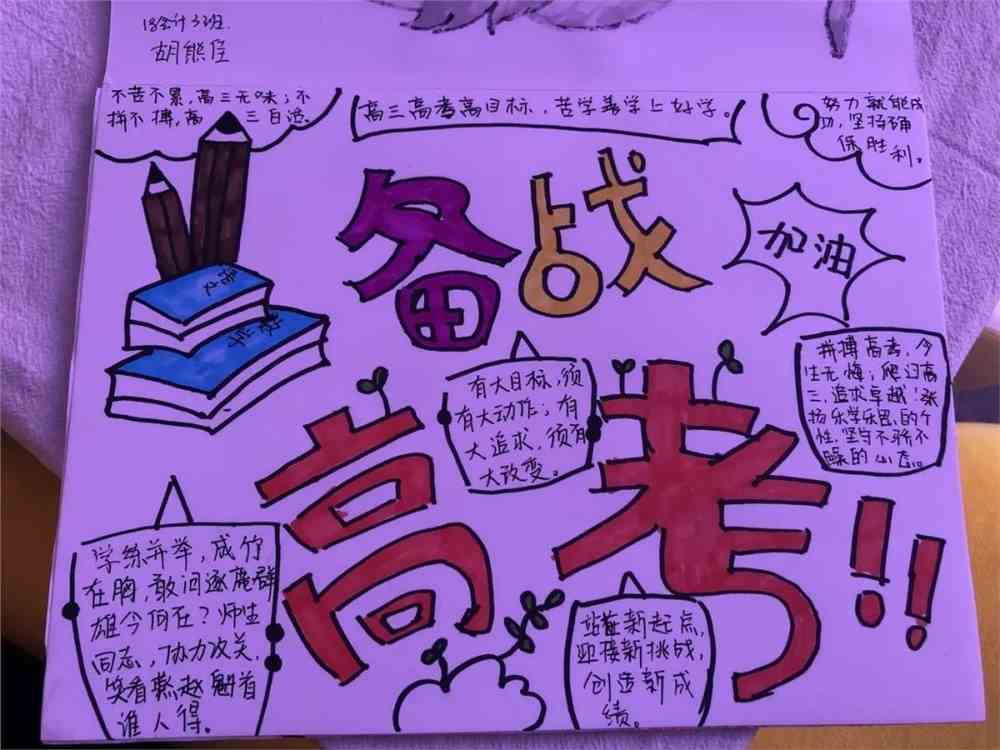 18会计3班
胡熊臣
不苦不累，高三无味；不
拼不搏，高三白活。
高三高考高目标，苦学善学上好学。
努力就能成
功，坚持确
保胜利。
备战
加油
语文
高考!!
有大目标，须
有大动作；有
大追求，须有
大改变。
拼搏高考，今
生无悔；爬过高
三，追求卓越！张
扬乐学乐思的个
性，坚守不骄不
躁的心态。
学练并举，成竹
在胸，敢问逐鹿群
雄今何在？师生
同志，协力攻关，
笑看燕赵魁首
谁人得。
站在新起点，
迎接新挑战，
创造新成
绩。